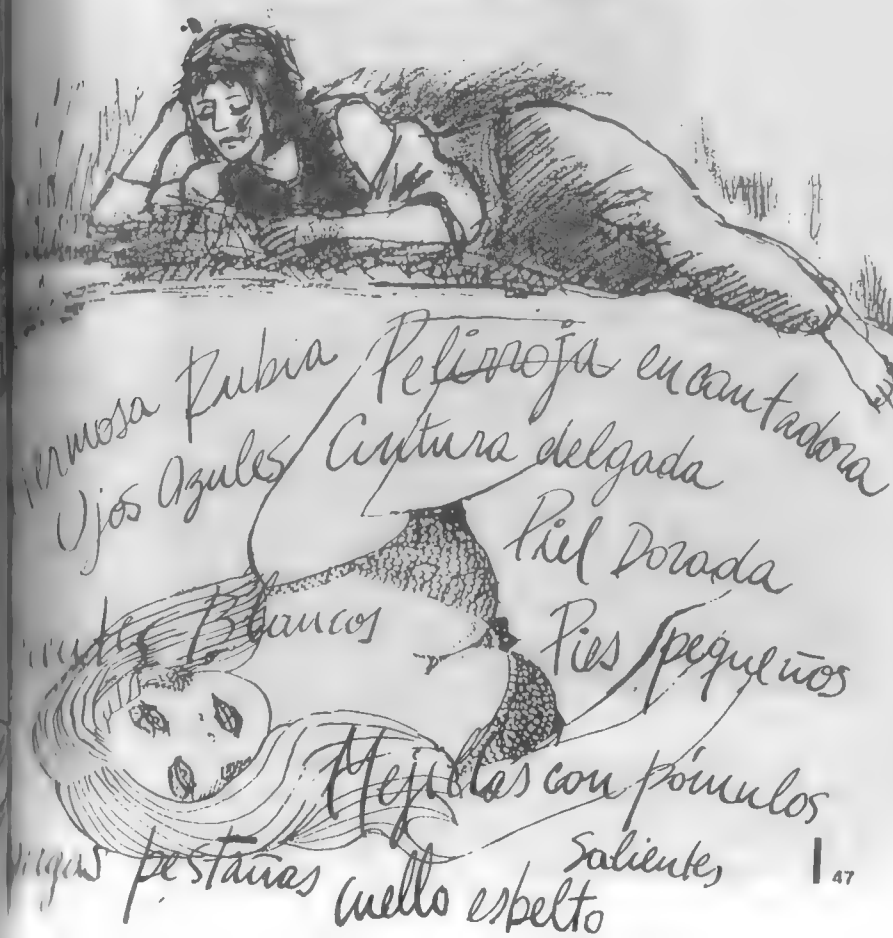 Hermosa Rubia Pelirroja encantadora
Ojos Azules Cintura delgada
Piel Dorada
Blancos
Pies pequeños
Mejillas con pómulos
Salientes
pestañas
cuello esbelto
47